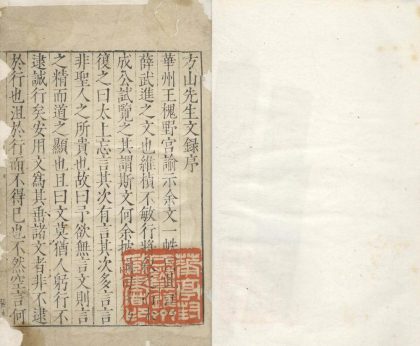 方山先生文録序
華州王槐野宮諭示余文一帙
薛武進之文也維楨不敏行將
成公試覽之其謂斯文何余披
復之曰太上忘言其次有言其次多言言
非聖人之所貴也故曰予欲無言文則言
之精而道之顯也且曰文莫猶人躬行不
逮誠行矣安用文為其垂諸文者非不逮
於行也沮於行而不得已也不然空言何